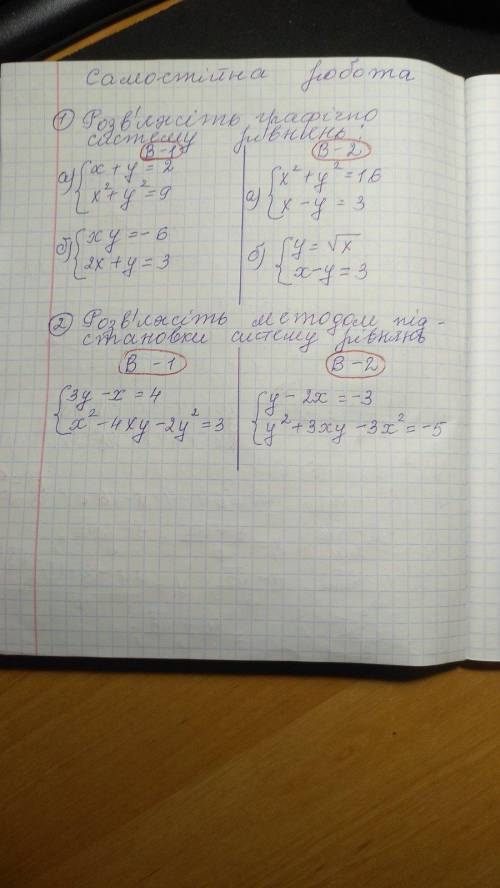 Самостійна робота
① Розв'яжіть графічно
систему рівнянь:
В-1
а) { x + y = 2
x² + y² = 9
б) { xy = -6
2x + y = 3
В-2
а) { x² + y² = 16
x - y = 3
б) { y = √x
x - y = 3
② Розв'яжіть методом під-
становки систему рівнянь
В-1
{ 3y - x = 4
x² - 4xy - 2y² = 3
В-2
{ y - 2x = -3
y² + 3xy - 3x² = -5